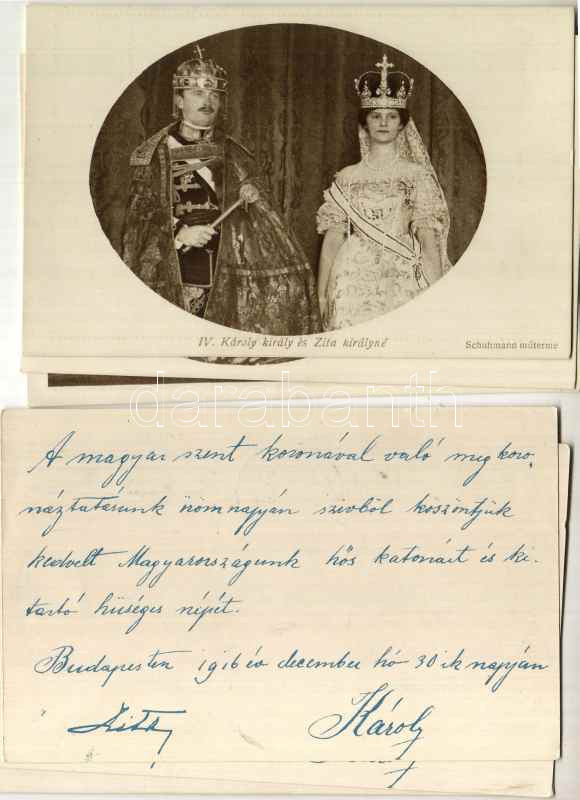 IV. Károly király és Zita királyné
Schuhmann műterme
darabanth
A magyar szent koronával való megkoro-
náztatásunk örömnapján szívből köszöntjük
kedvelt Magyarországunk hős katonáit és ki-
tartó hűséges népét.
Budapesten 1916 év december hó 30 ik napján
Zita
Károly